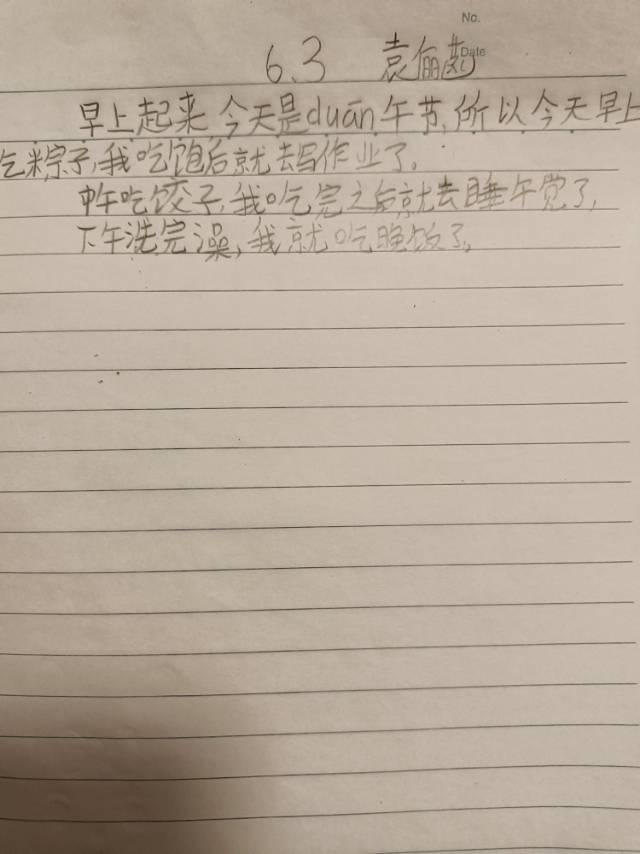 No.
Date
6.3 袁俪
早上起来,今天是duān午节,所以今天早上
吃粽子,我吃饱后就去写作业了。
中午吃饺子,我吃完之后就去睡午觉了,
下午洗完澡,我就吃晚饭了。